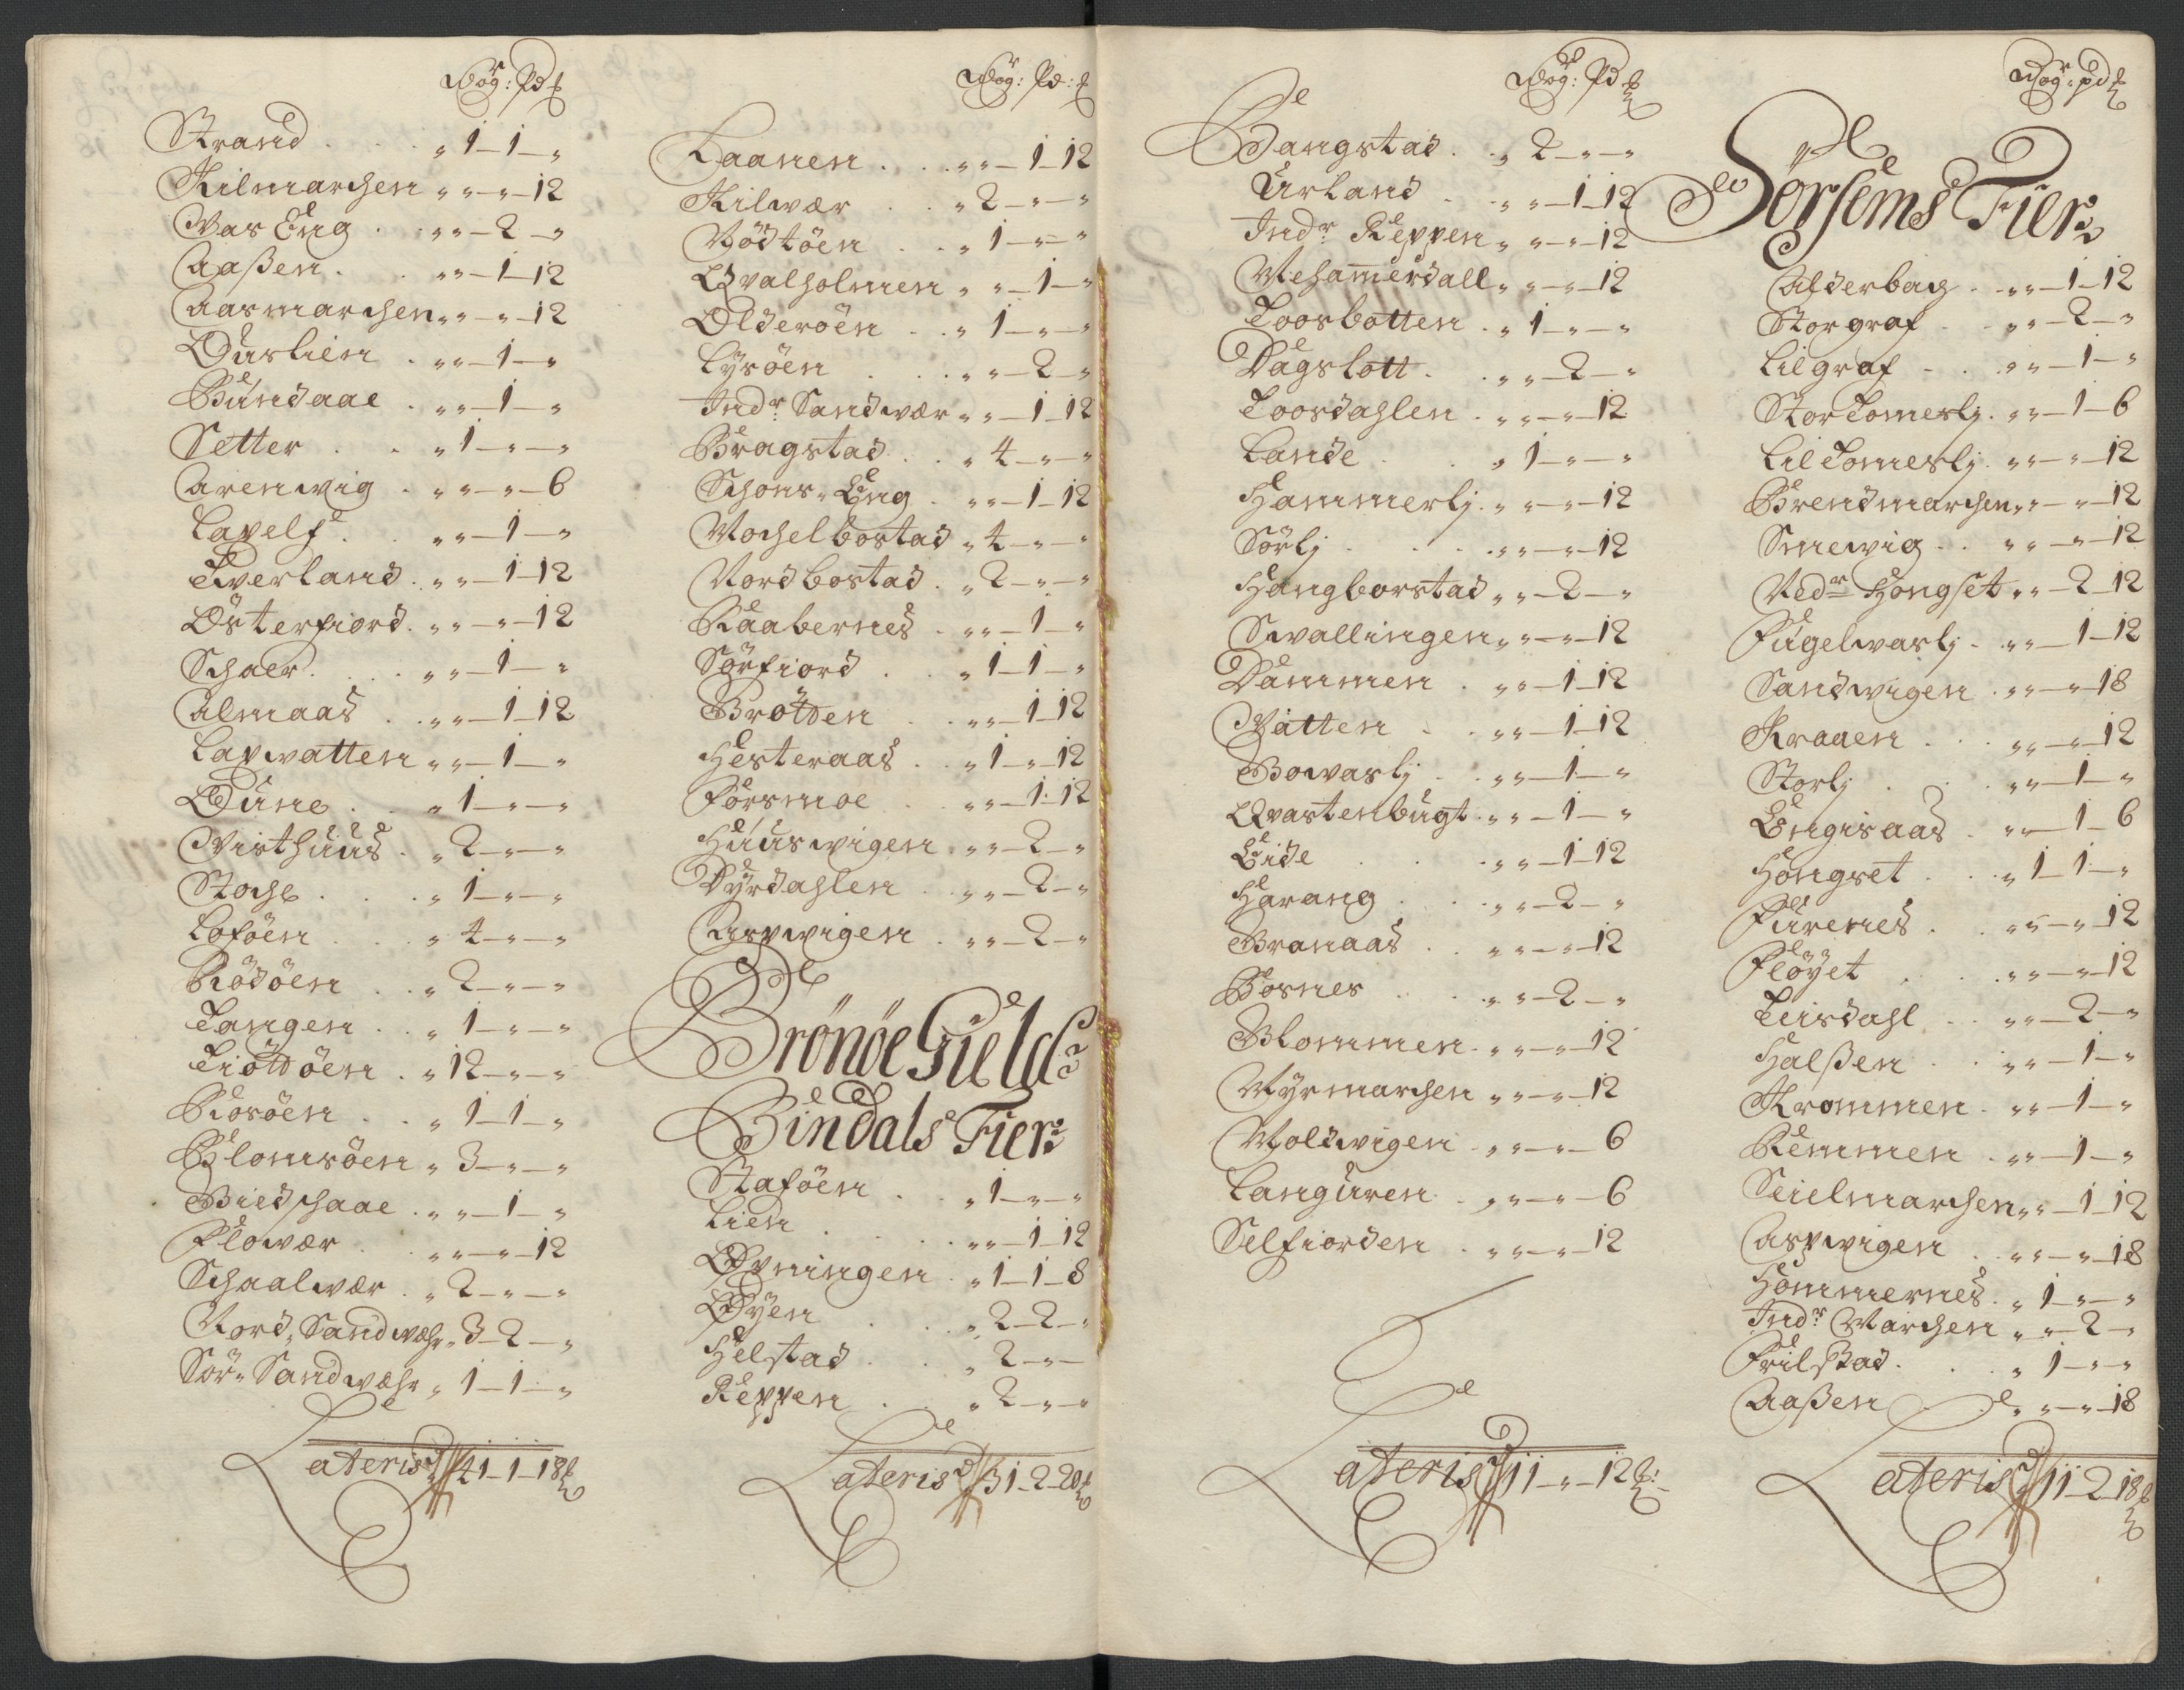 Wog: Pd
Strand . . . „ 1 – 1 – „
Kilmarchen „ „ – „ – 12
Vas Eng . „ „ – 2 – „
Aaßen . . „ „ – 1 – 12
Aasmarchen „ „ – „ – 12
Duslien . „ „ – 1 – „
Bundaae . „ „ – 1 – „
Setter . . „ 1 – „ – „
Arenwig . „ „ – „ – 6
Lapelf . . „ „ – 1 – „
Tverland . „ „ – 1 – 12
Østerfiord . „ „ – „ – 12
Schaer . . „ „ – 1 – „
Almaas . . „ „ – 1 – 12
Lapwatten „ „ – 1 – „
Dune . . „ 1 – „ – „
Visthuus . „ 2 – „ – „
Stoche . . „ 1 – „ – „
Loföen . . „ 4 – „ – „
Rödöen . . „ 2 – „ – „
Tangen . . „ 1 – „ – „
Tiöttöen . „ 12 – „ – „
Rosöen . . „ 1 – 1 – „
Blomsöen „ 3 – „ – „
Biedschaae . „ „ – 1 – „
Flowær . . „ „ – „ – 12
Schaalwær . „ 2 – „ – „
Nord „ Sandwæhr „ 3 – 2 – „
Sör „ Sandwæhr „ 1 – 1 – „
Lateris 41 – 1 – 18
Wog: Pd:
Laanen . . . „ „ – 1 – 12
Kilwær . . „ 2 – „ – „
Rödtöen . . „ 1 – „ – „
Qvalholmen „ „ – 1 – „
Olderöen . . „ 1 – „ – „
Lysöen . . „ „ – 2 – „
Indr Sandwær „ „ – 1 – 12
Bragstad . . „ 4 – „ – „
Schons „ Eng . „ „ – 1 – 12
Mochelbostad „ 4 – „ – „
Nordbostad . „ 2 – „ – „
Raabernes . „ „ – 1 – „
Sörfiord . „ 1 – 1 – „
Brötten . . „ „ – 1 – 12
Hesteraas . „ 1 – „ – 12
Forsmoe . . „ „ – 1 – 12
Huuswigen . „ „ – 2 – „
Dyrdahlen . „ „ – 2 – „
Aspwigen . „ „ – 2 – „
Brönöe Gield
Bindals Fier:
Staföen . . „ 1 – „ – „
Lien . . . „ „ – 1 – 12
Øpningen . „ 1 – 1 – 8
Øyen . . . „ 2 – 2 – „
Helstad . . „ 2 – „ –
Reppen . . „ 2 – „ – „
Lateris 31 – 2 – 20
Wog: Pd
Bangstad . . „ 2 – „ – „
Urland . . „ „ – 1 – 12
Indr Reppen „ „ – „ – 12
Nehamerdall „ „ – „ – 12
Toosbotten . „ 1 – „ – „
Dagslott . . „ „ – 2 – „
Toosdahlen . „ „ – „ – 12
Lande . . . „ 1 – „ – „
Hammerlj . „ „ – „ – 12
Sörlj . . . „ „ – „ – 12
Hangborstad „ „ – 2 – „
Swallingen „ „ – „ – 12
Dammen . „ „ – 1 – 12
Vatten . . „ „ – 1 – 12
Bowaslj . . „ „ – 1 – „
Qvastenbugt . „ „ – 1 – „
Eide . . . „ „ – 1 – 12
Harang . . „ „ – 2 – „
Branaas . „ „ – „ – 12
Bosnes . . „ „ – 2 – „
Blommen . „ „ – „ – 12
Myrmarchen „ „ – „ – 12
Moldwigen . „ „ – „ – 6
Languren . „ „ – „ – 6
Selfiorden . „ „ – „ – 12
Lateris 11 – „ – 12
Wog: pd
Sörsems Fier:
Alderbach . „ „ – 1 – 12
Storgraf . „ „ – 2 – „
Lilgraf . . „ „ – 1 – „
Stor Tomeslj . „ „ – 1 – 6
Lil Tomeslj . „ „ – „ – 12
Brendmarchen „ „ – „ – 12
Smewig . . „ „ – „ – 12
Nedr Hongset „ „ – 2 – 12
Fugelwaslj . „ „ – 1 – 12
Sandwigen . „ „ – „ – 18
Kraaen . . „ „ – „ – 12
Storlj . . „ „ – 1 – „
Engisaas . „ „ – 1 – 6
Hongset . . „ 1 – 1 – „
Furenes . . „ „ – „ – 12
Flöyet . . „ „ – „ – 12
Teisdahl . . „ „ – 2 – „
Halßen . . „ „ – 1 – „
Krommen . „ „ – 1 – „
Remmen . „ „ – 1 – „
Seielmarchen „ „ – 1 – 12
Aspwigen . „ „ – „ – 18
Hommernes . „ 1 – „ – „
Indr Marchen „ „ – 2 – „
Frilstad . . „ 1 – „ – „
Aaßen . . „ „ – „ – 18
Lateris 11 – 2 – 18